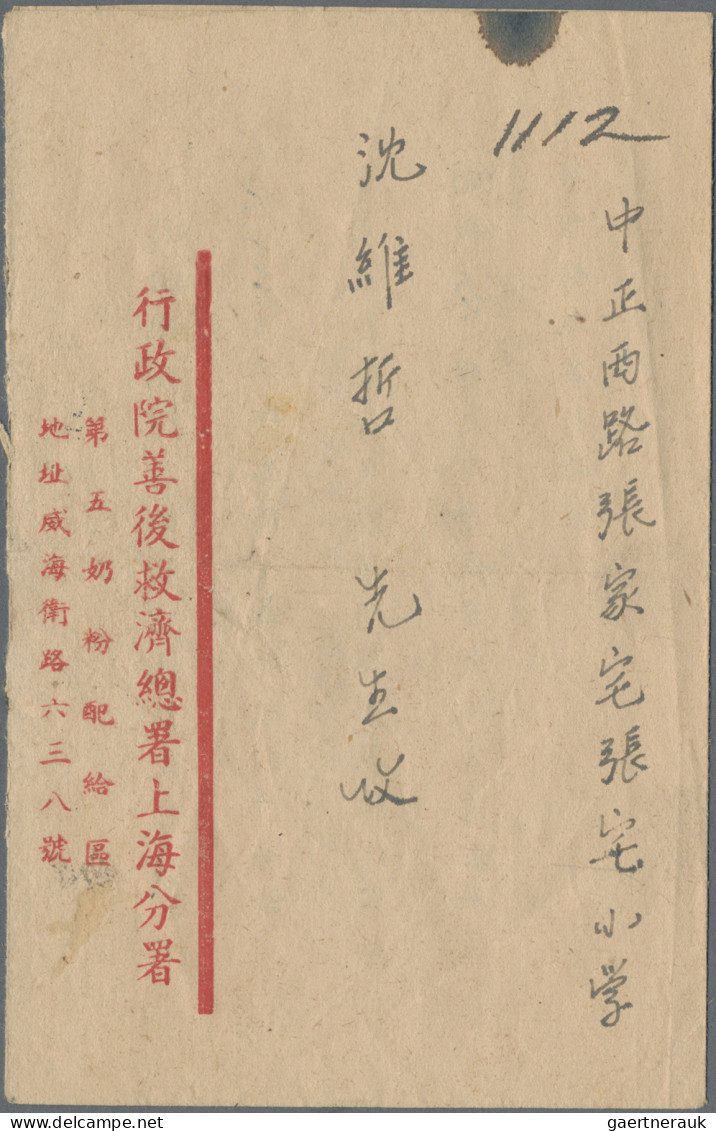 1112
中正西路張家宅張宅小学
沈維哲 先生收
行政院善後救濟總署上海分署
第五奶粉配給區
地址威海衛路六三八號
www.delcampe.net
gaertnerauk